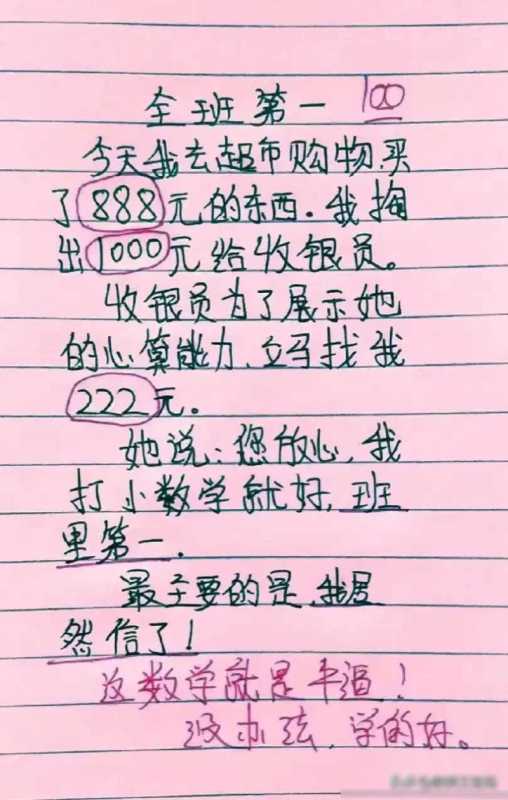 全班第一 100
今天我去超市购物,买
了888元的东西.我掏
出1000元给收银员。
收银员为了展示她
的心算能力,立马找我
222元。
她说:您放心,我
打小数学就好,班
里第一.
最主要的是,我居
然信了!
这数学就是牛逼!
没办法,学的好。